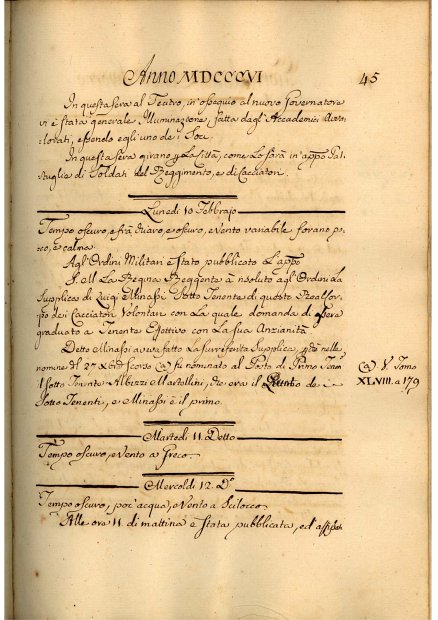 Anno MDCCCVI
45
In questa sera al Teatro, in ossequio al nuovo Governatore
vi è stata generale Illuminazione, fatta dagl'Accademici
essendo egli uno de i Soci.
In questa sera girano p la Città, come lo sarà in app̃o Pat-
tuglie di Soldati del Reggimento, e di Cacciatori.
Lunedì 10 Febbrajo
Tempo oscuro, e frà chiaro, e oscuro, e vento variabile forano po-
co, e calma.
Agl'Ordini Militari è stato pubblicato L'app̃o
S. M. La Regina Reggente à risoluto agl'Ordini La
Supplica di Luigi Minassi Sotto Tenente di questo Real Cor-
po dei Cacciatori Volontari con La quale domanda di essere
graduato a Tenente Effettivo con La sua Anzianità.
Detto Minassi aveva fatto La surriferita Supplica, nelle
nomine del 27 scorso (a) fu nominato al Posto di Primo
il Sotto Tenente Albizzi Martellini, che era il de i
Sotto Tenenti, e Minassi è il primo.
(a) V. Tomo
XLVIII. a 179
Martedì 11. Detto
Tempo oscuro, e vento a Greco.
Mercoldì 12. Dº
Tempo oscuro, poc'acqua, e vento a Scilocco.
Alle ore 11. di mattina è stata pubblicata, ed